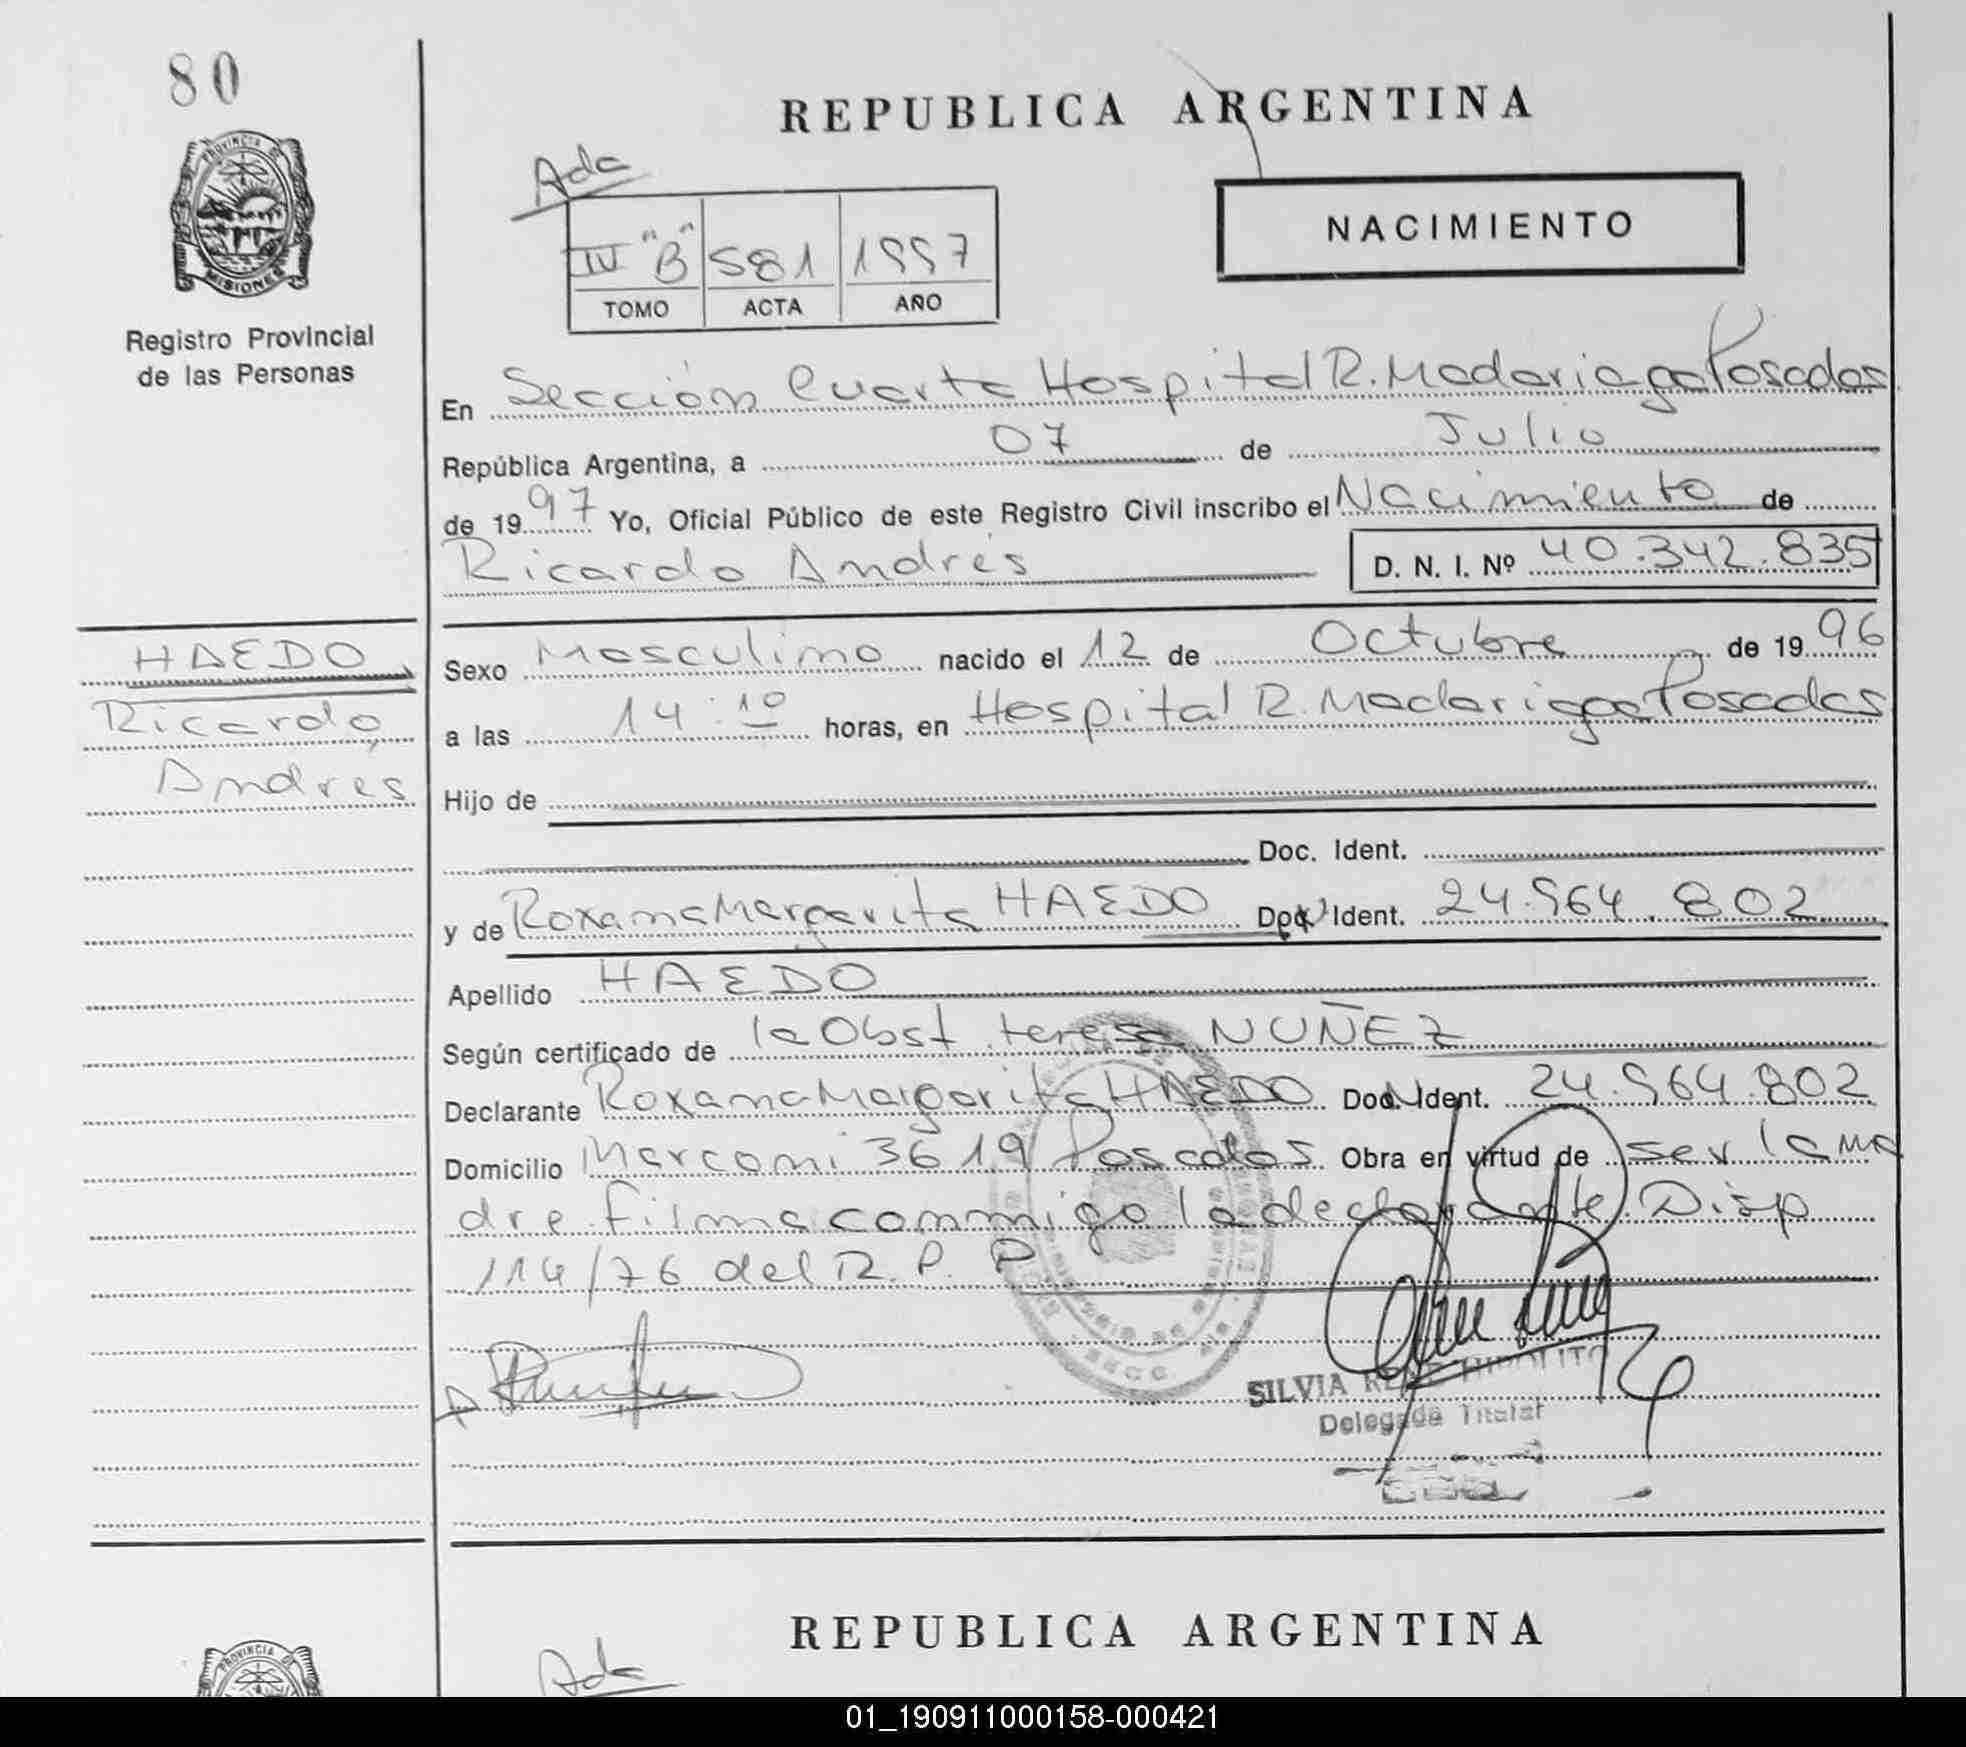 80
REPUBLICA ARGENTINA
PROVINCIA DE
MISIONES
Registro Provincial
de las Personas
Ada
IV "B" 581 1997
TOMO ACTA AÑO
NACIMIENTO
En Sección Cuarta Hospital R. Madariaga Posadas
República Argentina, a 07 de Julio
de 1997 Yo, Oficial Público de este Registro Civil inscribo el Nacimiento de
Ricardo Andrés D. N. I. Nº 40.342.835
HAEDO
Ricardo
Andres
Sexo Masculino nacido el 12 de Octubre de 1996
a las 14:10 horas, en Hospital R. Madariaga Posadas
Hijo de
Doc. Ident.
y de Roxana Margarita HAEDO Doc. Ident. 24.964.802
Apellido HAEDO
Según certificado de la Obst. teresa NUÑEZ
Declarante Roxana Margarita HAEDO Doc. Ident. 24.964.802
Domicilio Marconi 3619 Posadas Obra en virtud de ser la ma
dre firma conmigo la declarante. Disp
114/76 del R. P. P
SILVIA HIPOLITO
Delegada Titular
REPUBLICA ARGENTINA
PROVINCIA DE
Ada
01_190911000158-000421